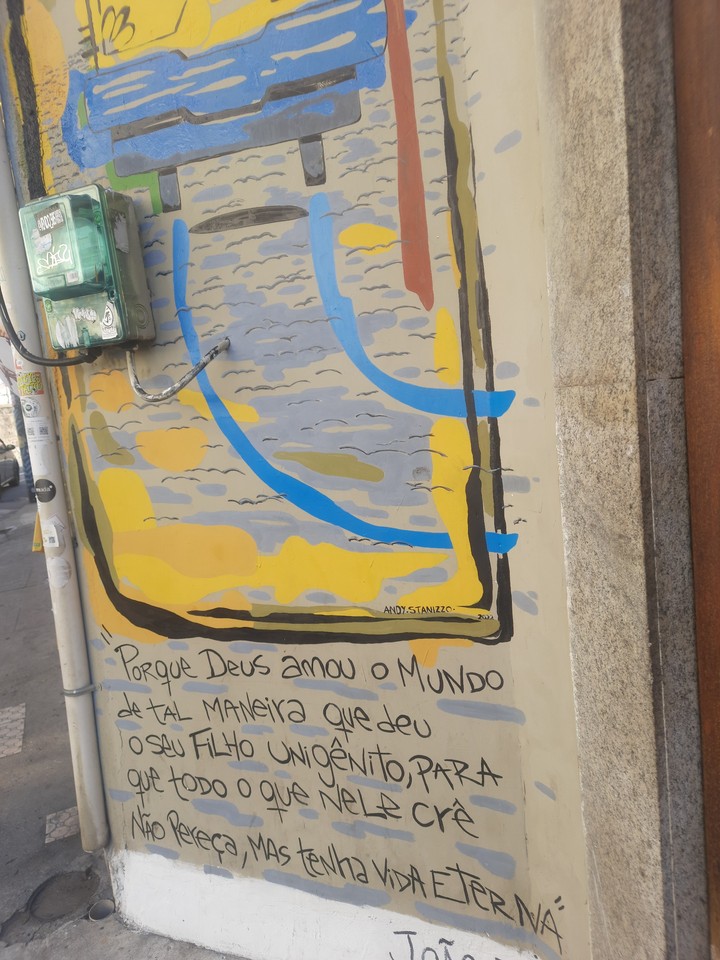 ANDY.STANIZZO.
"Porque Deus amou o Mundo
de tal maneira que deu
o seu Filho unigênito, para
que todo o que nele crê
não pereça, mas tenha vida eterna"
João